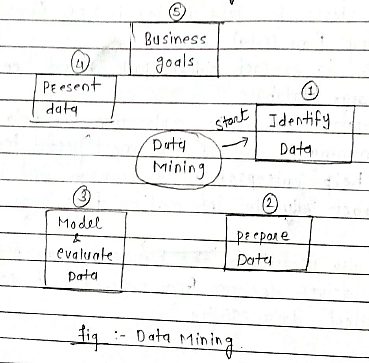 5
Business
goals
4
Present
data
1
Identify
Data
start
Data
Mining
3
Model
&
evaluate
Data
2
prepare
Data
fig :- Data Mining.